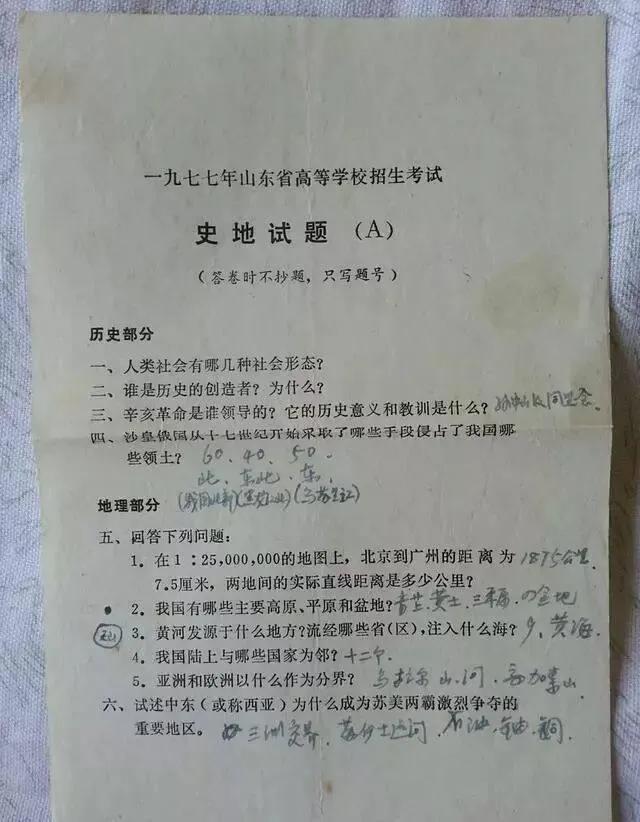 一九七七年山东省高等学校招生考试
史地试题（A）
（答卷时不抄题，只写题号）
历史部分
一、人类社会有哪几种社会形态？
二、谁是历史的创造者？为什么？
三、辛亥革命是谁领导的？它的历史意义和教训是什么？
四、沙皇俄国从十七世纪开始采取了哪些手段侵占了我国哪
些领土？ 60、40、50.
北、东北、东
地理部分
五、回答下列问题：
1．在1：25,000,000的地图上，北京到广州的距离为 1875公里
7.5厘米，两地间的实际直线距离是多少公里？
2．我国有哪些主要高原、平原和盆地？
3．黄河发源于什么地方？流经哪些省(区)，注入什么海？9、黄海
4．我国陆上与哪些国家为邻？十二个
5．亚洲和欧洲以什么作为分界？乌拉尔山、河、高加索山
六、试述中东（或称西亚）为什么成为苏美两霸激烈争夺的
重要地区。 三洲交界 苏伊士运河 石油、铀、铜.